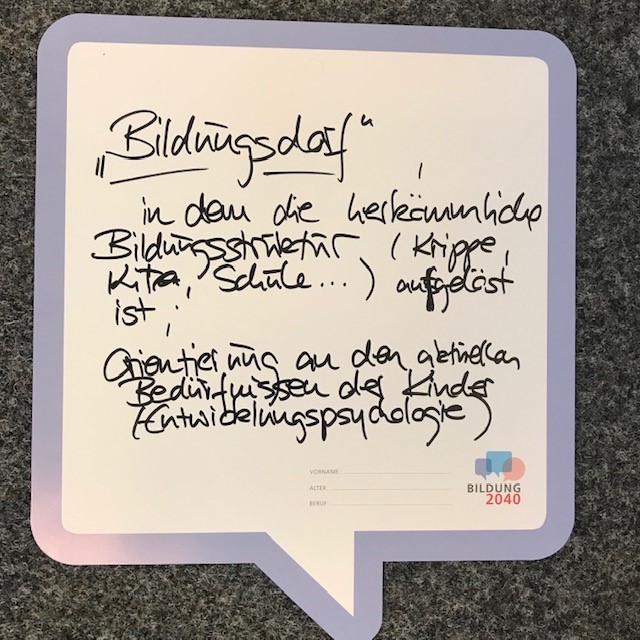 „Bildungsdorf“
in dem die herkömmliche
Bildungsstruktur (Krippe,
Kita, Schule...) aufgelöst
ist;
Orientierung an den aktuellen
Bedürfnissen der Kinder
(Entwicklungspsychologie)
VORNAME
ALTER
BERUF
BILDUNG
2040